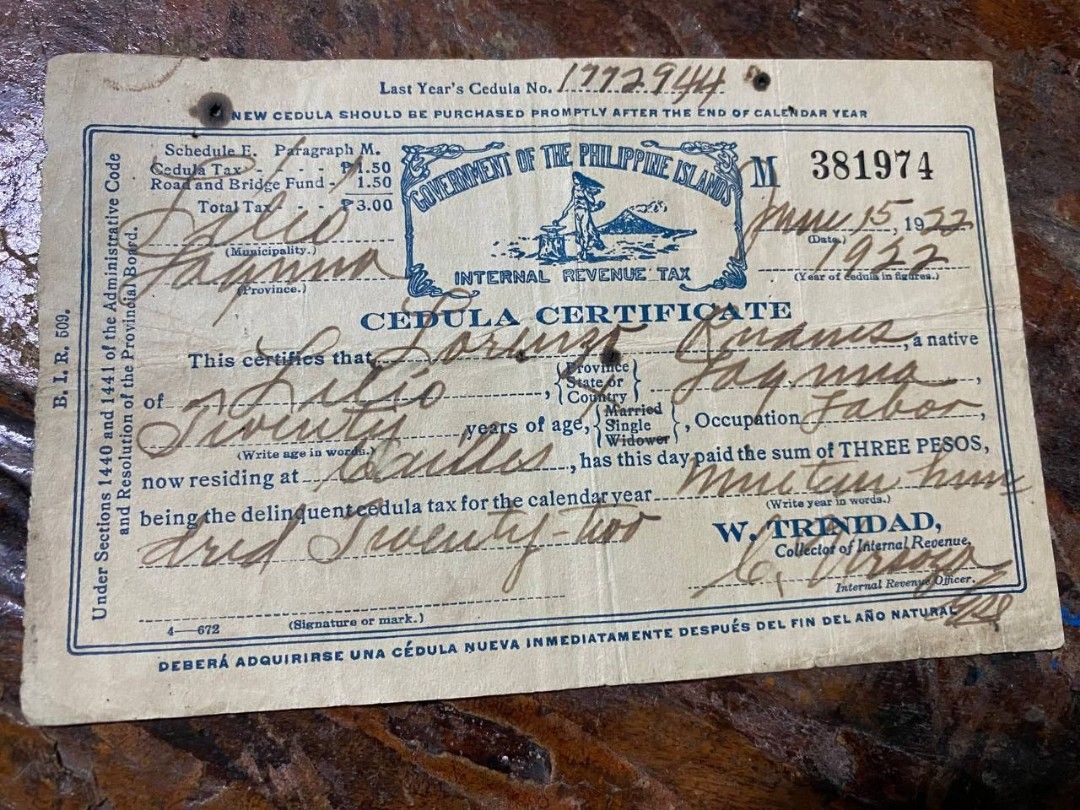 Last Year's Cedula No. 1772944
NEW CEDULA SHOULD BE PURCHASED PROMPTLY AFTER THE END OF CALENDAR YEAR
Under Sections 1440 and 1441 of the Administrative Code
and Resolution of the Provincial Board.
B. I. R. 509.
Schedule E. Paragraph M.
Cedula Tax - - - ₱1.50
Road and Bridge Fund - 1.50
Total Tax - - ₱3.00
Lilio
(Municipality.)
Laguna
(Province.)
GOVERNMENT OF THE PHILIPPINE ISLANDS
INTERNAL REVENUE TAX
M 381974
June 15, 1922
(Date.)
1922
(Year of cedula in figures.)
CEDULA CERTIFICATE
This certifies that Lorenzo, a native
of Lilio, {Province State or Country} Laguna,
Twenty years of age, {Married Single Widower}, Occupation Labor,
(Write age in words.)
now residing at Cailles, has this day paid the sum of THREE PESOS,
being the delinquent cedula tax for the calendar year nineteen hun
(Write year in words.)
dred Twenty-two
W. TRINIDAD,
Collector of Internal Revenue,
Internal Revenue Officer.
(Signature or mark.)
4—672
DEBERÁ ADQUIRIRSE UNA CÉDULA NUEVA INMEDIATAMENTE DESPUÉS DEL FIN DEL AÑO NATURAL